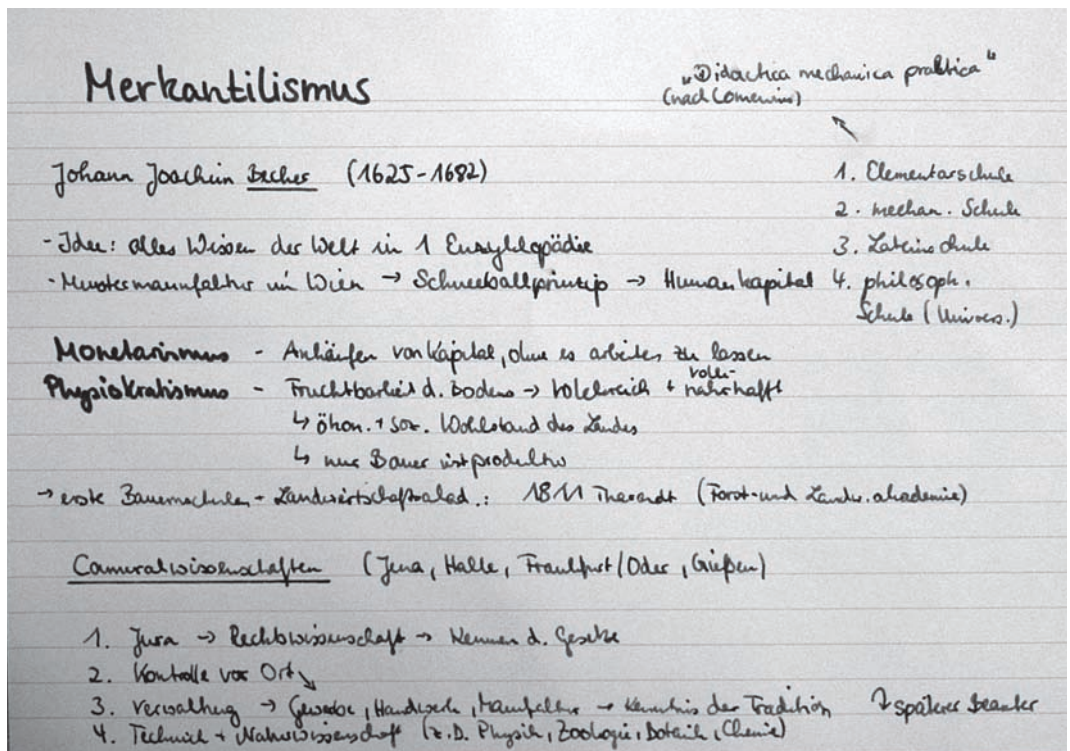 Merkantilismus
„Didactica mechanica praktica“
(nach Comenius)
Johann Joachim Becher (1625-1682)
1. Elementarschule
2. mechan. Schule
3. Lateinschule
4. philosoph.
Schule (Univers.)
- Idee: alles Wissen der Welt in 1 Enzyklopädie
- Mustermannfaktur in Wien → Schneeballprinzip → Humankapital
Monetarismus - Anhäufen von Kapital, ohne es arbeiten zu lassen
Physiokratismus - Fruchtbarkeit d. Bodens → volckreich + volck-nahrhafft
↳ ökon. + soz. Wohlstand des Landes
↳ nur Bauer ist produktiv
→ erste Bauernschulen + Landwirtschaftsakad.: 1811 Tharandt (Forst- und Landw. akademie)
Cameralwissenschaften (Jena, Halle, Frankfurt/Oder, Gießen)
1. Jura → Rechtswissenschaft → Kennen d. Gesetze
2. Kontrolle vor Ort ↘
3. Verwaltung → Gewerbe, Handwerk, Manufaktur → Kenntnis der Tradition
späterer Beamter
4. Technik + Naturwissenschaft (z.B. Physik, Zoologie, Botanik, Chemie)